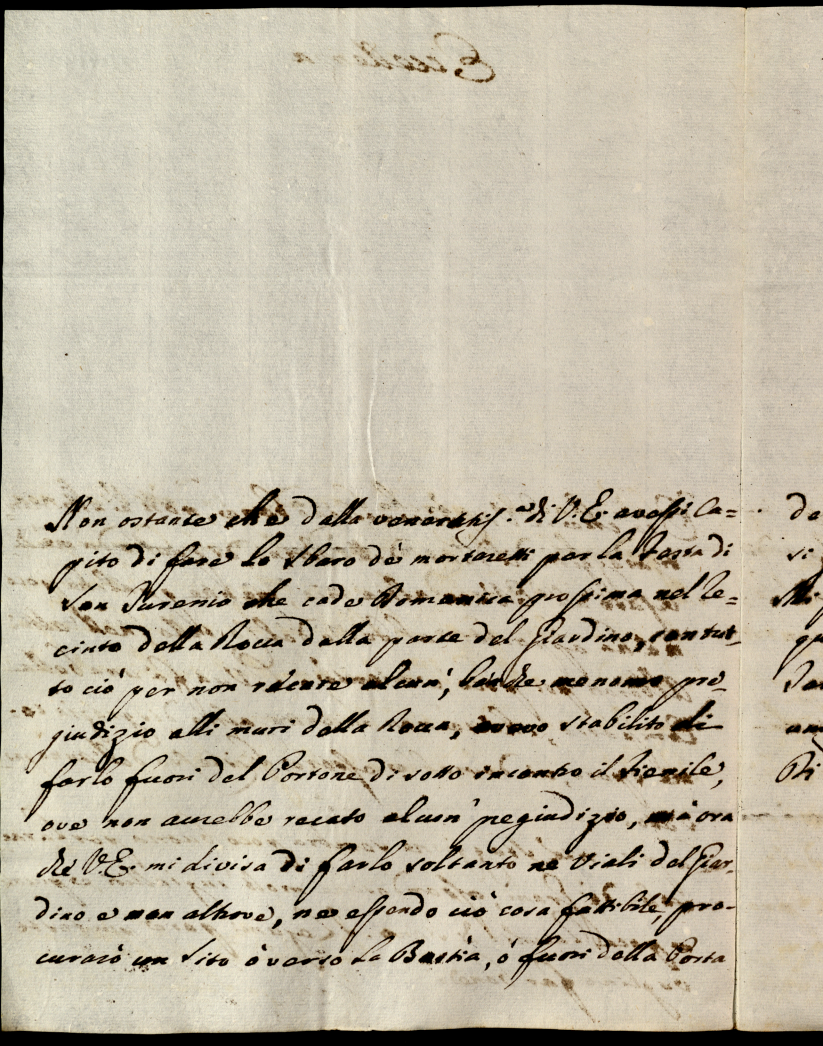 Non ostante che dalla veneratiss.ma di V. E. avessi Ca=
pito di fare lo Sbaro dè mortaretti per la Festa di
San Turenio che cade Domenica prossima nel Re=
cinto della Rocca dalla parte del Giardino, contut=
tò ciò per non recare alcun', benche menomo pre=
giudizio alli muri della Rocca, avevo stabilito di
farlo fuori del Portone di sotto incontro il Fienile,
ove non aurebbe recato alcun' pegiudizio, mà ora
chè V. E. mi divisa di farlo soltanto ne Viali del Giar=
dino e non altrove, ne essendo ciò cosa fattibile, pro=
curarò un Sito ò verso la Bastia, ò fuori della Porta
de
si
qu